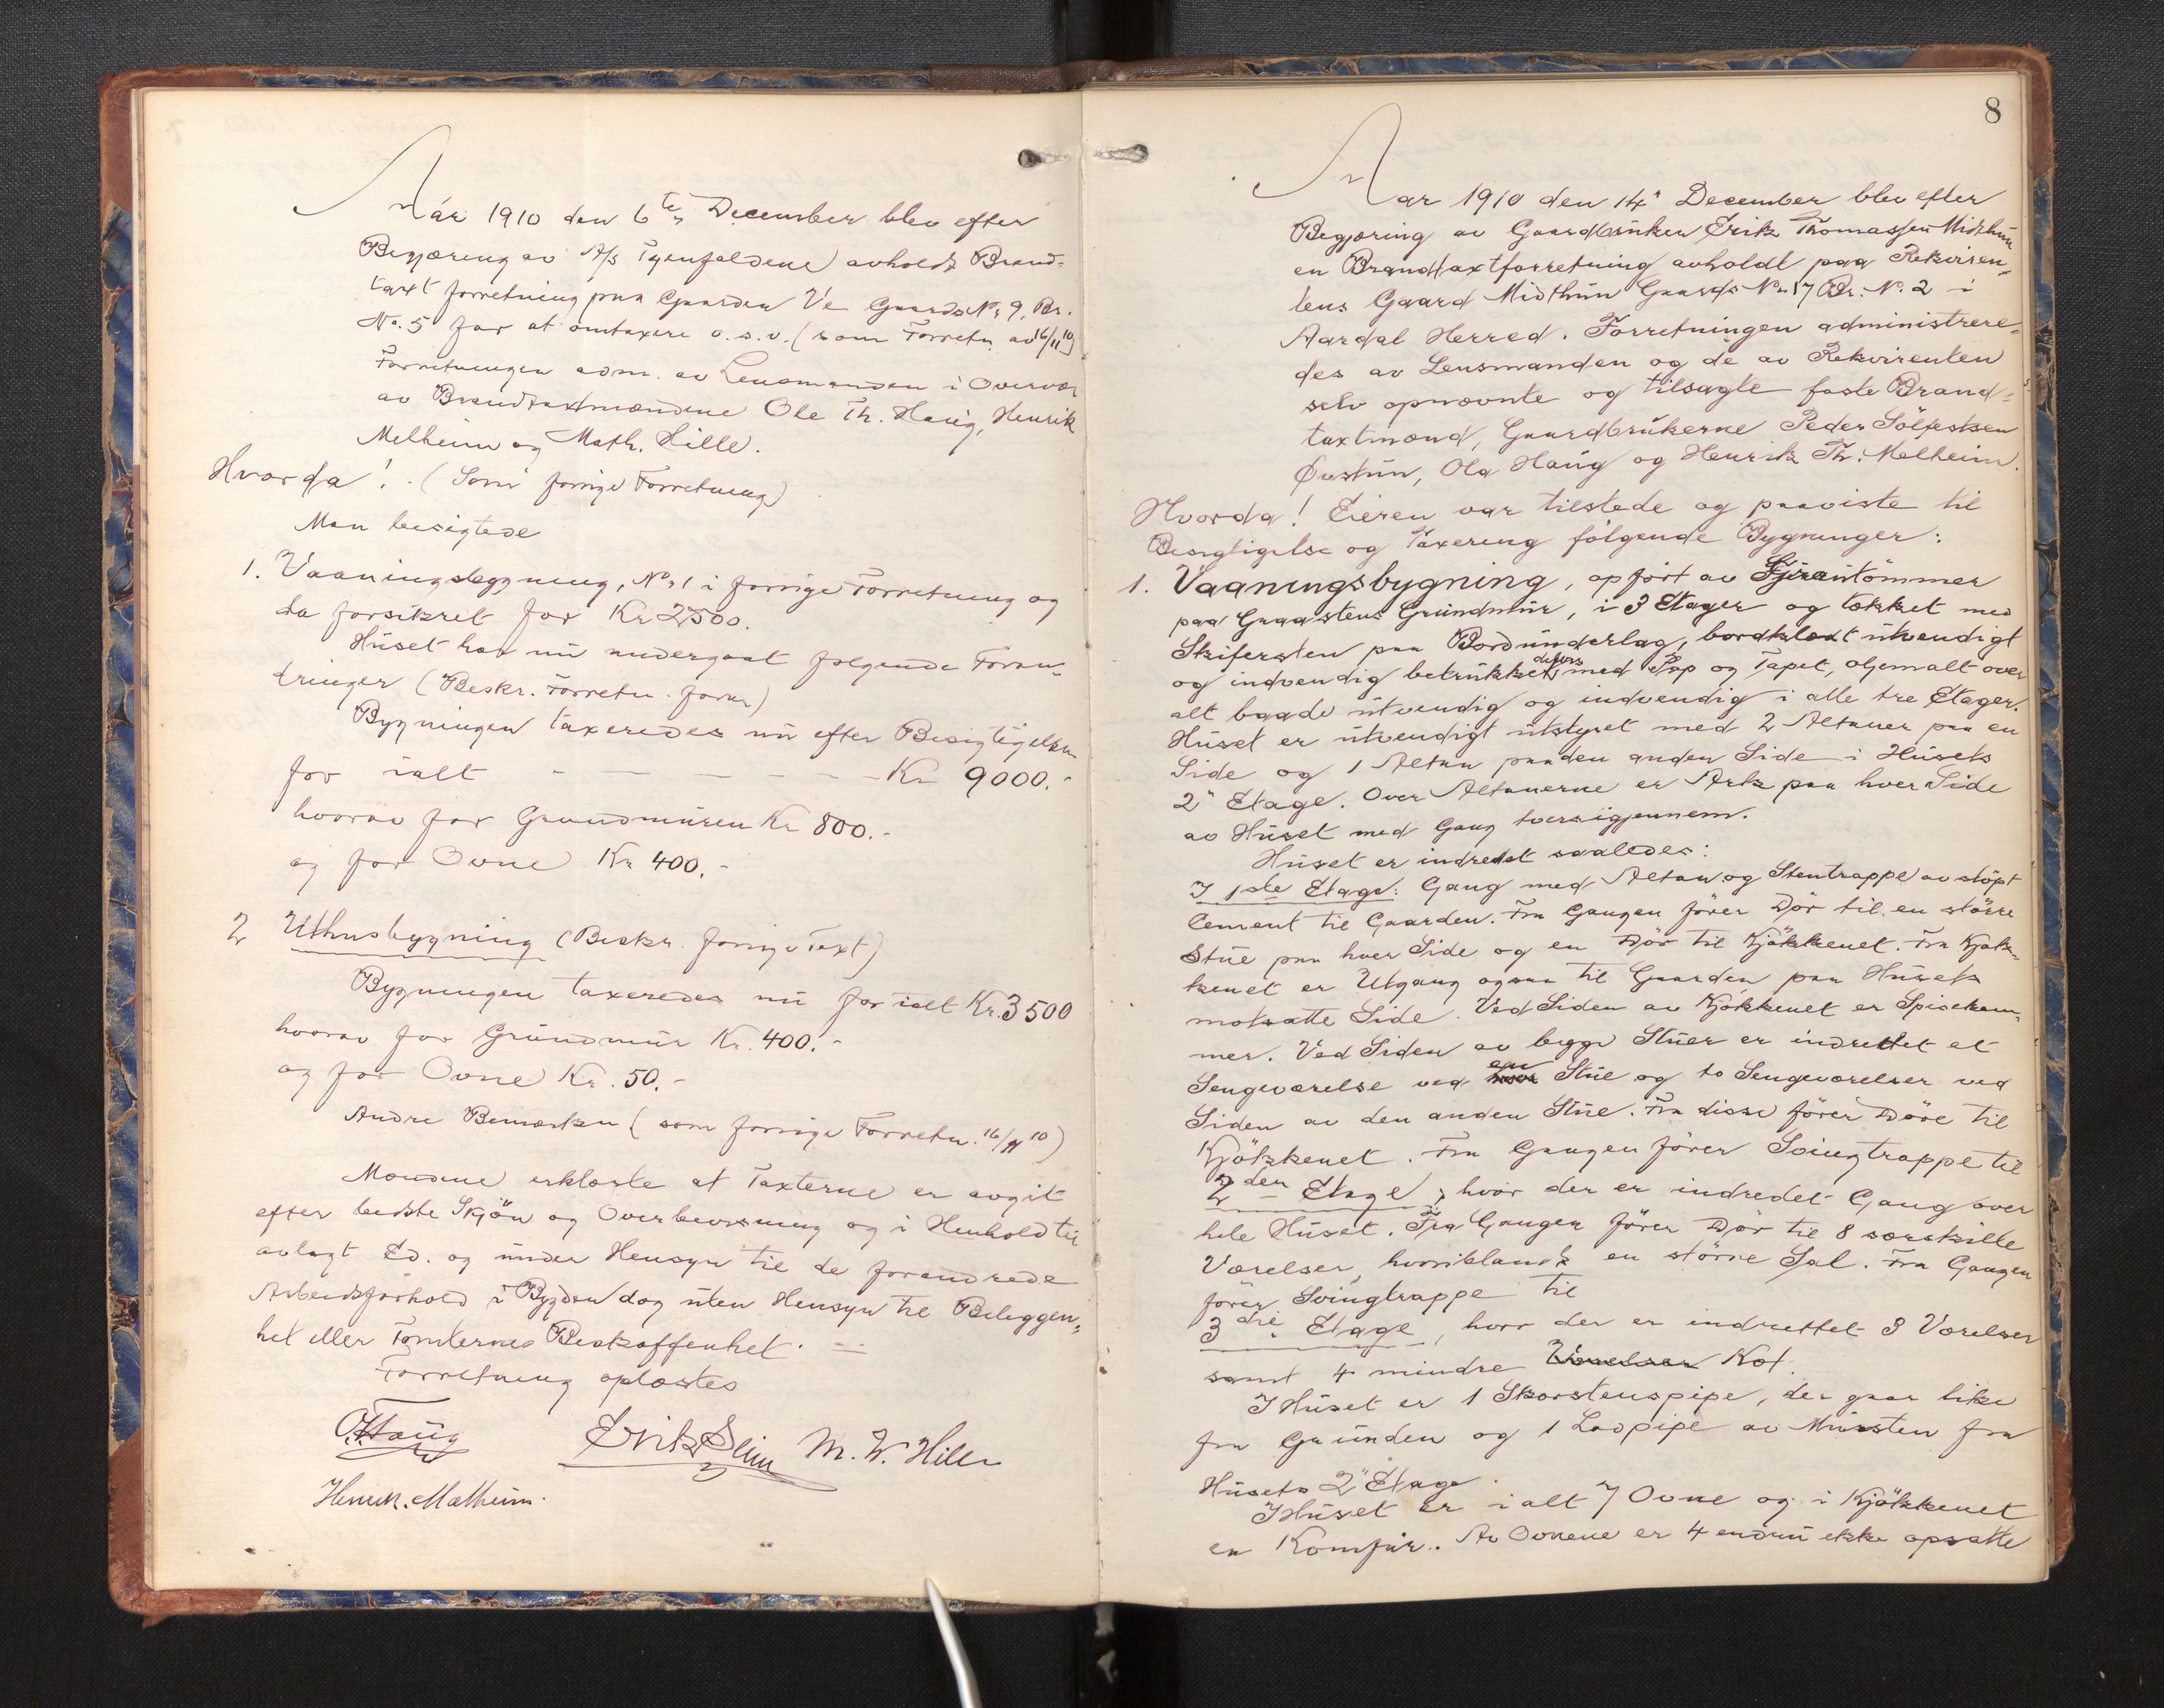 Aar 1910 den 6te December blev efter
Begjæring av A/s Tyenfaldene avholdt Brand-
taxt forretning paa Gaarden Ve Gaards No. 9. Br.
No. 5 for at omtaxere o.s.v. (som Forretn. av 16/11 10)
Forretningen adm. av Lensmanden i Overvær
av Brandtaxtmændene Ole Th. Haug, Henrik
Melheim og Math. Hille.
Hvorda! (Som forrige Forretning)
Man besigtede
1. Vaaningsbygning, No. 1 i forrige Forretning og
da forsikret for Kr 2500.
Huset har nu undergaat følgende Foran-
dringer (Beskr. Forretn. foran)
Bygningen taxeredes nu efter Besigtigelsen
for ialt - - - - - - - Kr 9000.-
hvorav for Grundmuren Kr 800.-
og for Ovne Kr. 400.-
2 Uthusbygning (Beskr. forrige Taxt)
Bygningen taxeredes nu for ialt Kr. 3500
hvorav for Grundmur Kr. 400.-
og for Ovne Kr. 50.-
Andre Bemærkn (som forrige Forretn. 16/11 10)
Mændene erklærte at Taxterne er avgit
efter bedste Skjøn og Overbevisning og i Henhold til
avlagt Ed. og under Hensyn til de forandrede
Arbeidsforhold i Bygden dog uten Hensyn til Beliggen-
het eller Tomternes Beskaffenhet.
Forretning oplæstes
O. Haug Erik Slim M. W. Hille
Henrik. Melheim.
8
Aar 1910 den 14" December blev efter
Begjæring av Gaardbruker Erik Thomassen Midthun
en Brandtaxtforretning avholdt paa Rekviren-
tens Gaard Midthun Gaards No. 17 Br. N. 2 i
Aardal Herred. Forretningen administrere-
des av Lensmanden og de av Rekvirenten
selv opnævnte og tilsagte faste Brand-
taxtmænd, Gaardbrukerne Peder Sölfestsen
Øvstun, Ola Haug og Henrik Th. Melheim.
Hvorda! Eieren var tilstede og paaviste til
Besigtigelse og Taxering følgende Bygninger:
1. Vaaningsbygning, opført av Furutömmer
paa Graastens Grundmur, i 3 Etager og tækket med
Skifersten paa Bordunderlag, bordklædt utvendigt
og indvendig betrukket delvis med Pap og Tapet, oljemalt over
alt baade utvendig og indvendig i alle tre Etager.
Huset er utvendigt utstyret med 2 Altaner paa en
Side og 1 Altan paa den anden Side i Husets
2" Etage. Over Altanerne er Ark paa hver Side
av Huset med Gang tversigjennem.
Huset er indredet saaledes:
I 1ste Etage: Gang med Altan og Stentrappe av støpt
Cement til Gaarden. Fra Gangen fører Dør til en større
Stue paa hver Side og en Dør til Kjøkkenet. Fra Kjøk-
kenet er Utgang ogsaa til Gaarden paa Husets
motsatte Side. Ved Siden av Kjøkkenet er Spisekam-
mer. Ved Siden av begge Stuer er indredet et
Sengeværelse ved hver en Stue og to Sengeværelser ved
Siden av den anden Stue. Fra disse fører Døre til
Kjøkkenet. Fra Gangen fører Svingtrappe til
2den Etage, hvor der er indredet Gang over
hele Huset. Fra Gangen fører Dør til 8 særskilte
Værelser, hvoriblandt en større Sal. Fra Gangen
fører Svingtrappe til
3die Etage, hvor der er indrettet 3 Værelser
samt 4 mindre Værelser Kot.
I Huset er 1 Skorstenspipe, der gaar like
fra Grunden og 1 Lodpipe av Mursten fra
Husets 2" Etage.
I Huset er i alt 7 Ovne og i Kjøkkenet
en Komfur. Av Ovnene er 4 endnu ikke opsatte